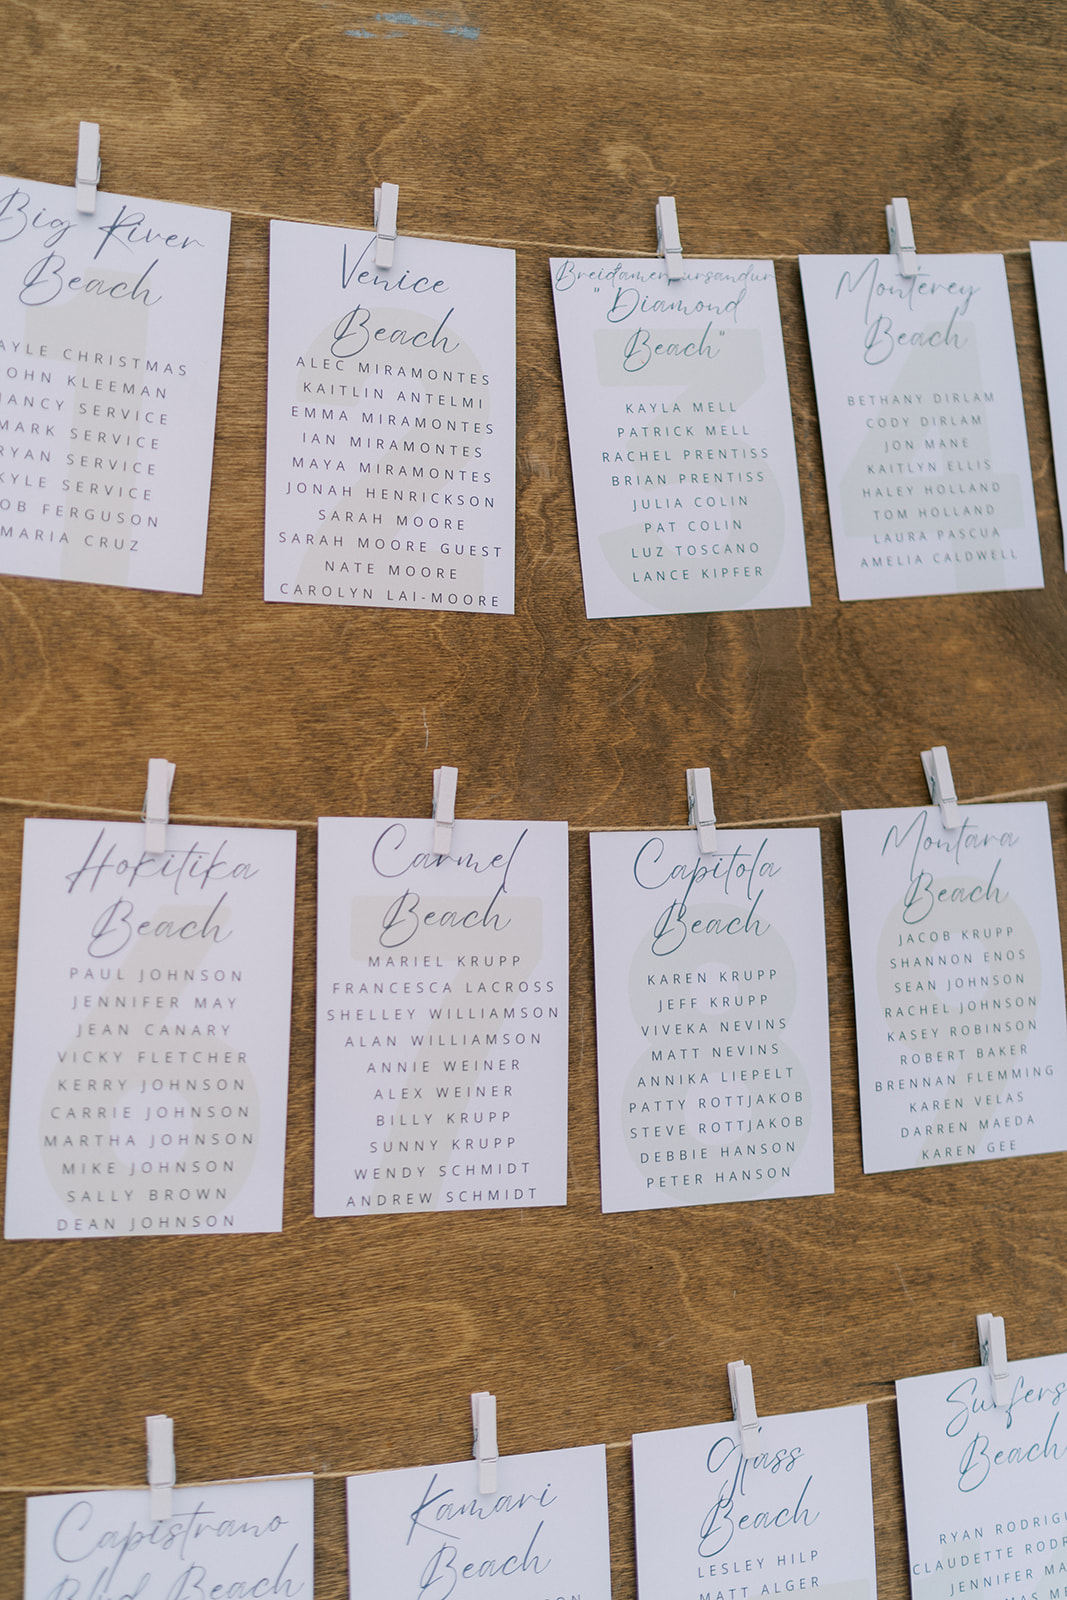 Big River
Beach
1
AYLE CHRISTMAS
OHN KLEEMAN
NANCY SERVICE
MARK SERVICE
RYAN SERVICE
KYLE SERVICE
OB FERGUSON
MARIA CRUZ
Venice
Beach
2
ALEC MIRAMONTES
KAITLIN ANTELMI
EMMA MIRAMONTES
IAN MIRAMONTES
MAYA MIRAMONTES
JONAH HENRICKSON
SARAH MOORE
SARAH MOORE GUEST
NATE MOORE
CAROLYN LAI-MOORE
"Diamond
Beach"
3
KAYLA MELL
PATRICK MELL
RACHEL PRENTISS
BRIAN PRENTISS
JULIA COLIN
PAT COLIN
LUZ TOSCANO
LANCE KIPFER
Monterey
Beach
4
BETHANY DIRLAM
CODY DIRLAM
JON MANE
KAITLYN ELLIS
HALEY HOLLAND
TOM HOLLAND
LAURA PASCUA
AMELIA CALDWELL
Hokitika
Beach
6
PAUL JOHNSON
JENNIFER MAY
JEAN CANARY
VICKY FLETCHER
KERRY JOHNSON
CARRIE JOHNSON
MARTHA JOHNSON
MIKE JOHNSON
SALLY BROWN
DEAN JOHNSON
Carmel
Beach
7
MARIEL KRUPP
FRANCESCA LACROSS
SHELLEY WILLIAMSON
ALAN WILLIAMSON
ANNIE WEINER
ALEX WEINER
BILLY KRUPP
SUNNY KRUPP
WENDY SCHMIDT
ANDREW SCHMIDT
Capitola
Beach
8
KAREN KRUPP
JEFF KRUPP
VIVEKA NEVINS
MATT NEVINS
ANNIKA LIEPELT
PATTY ROTTJAKOB
STEVE ROTTJAKOB
DEBBIE HANSON
PETER HANSON
Montara
Beach
9
JACOB KRUPP
SHANNON ENOS
SEAN JOHNSON
RACHEL JOHNSON
KASEY ROBINSON
ROBERT BAKER
BRENNAN FLEMMING
KAREN VELAS
DARREN MAEDA
KAREN GEE
Capistrano
Blvd Beach
Kamari
Beach
Glass
Beach
LESLEY HILP
MATT ALGER
Surfers
Beach
RYAN RODRIGU
CLAUDETTE RODR
JENNIFER MA